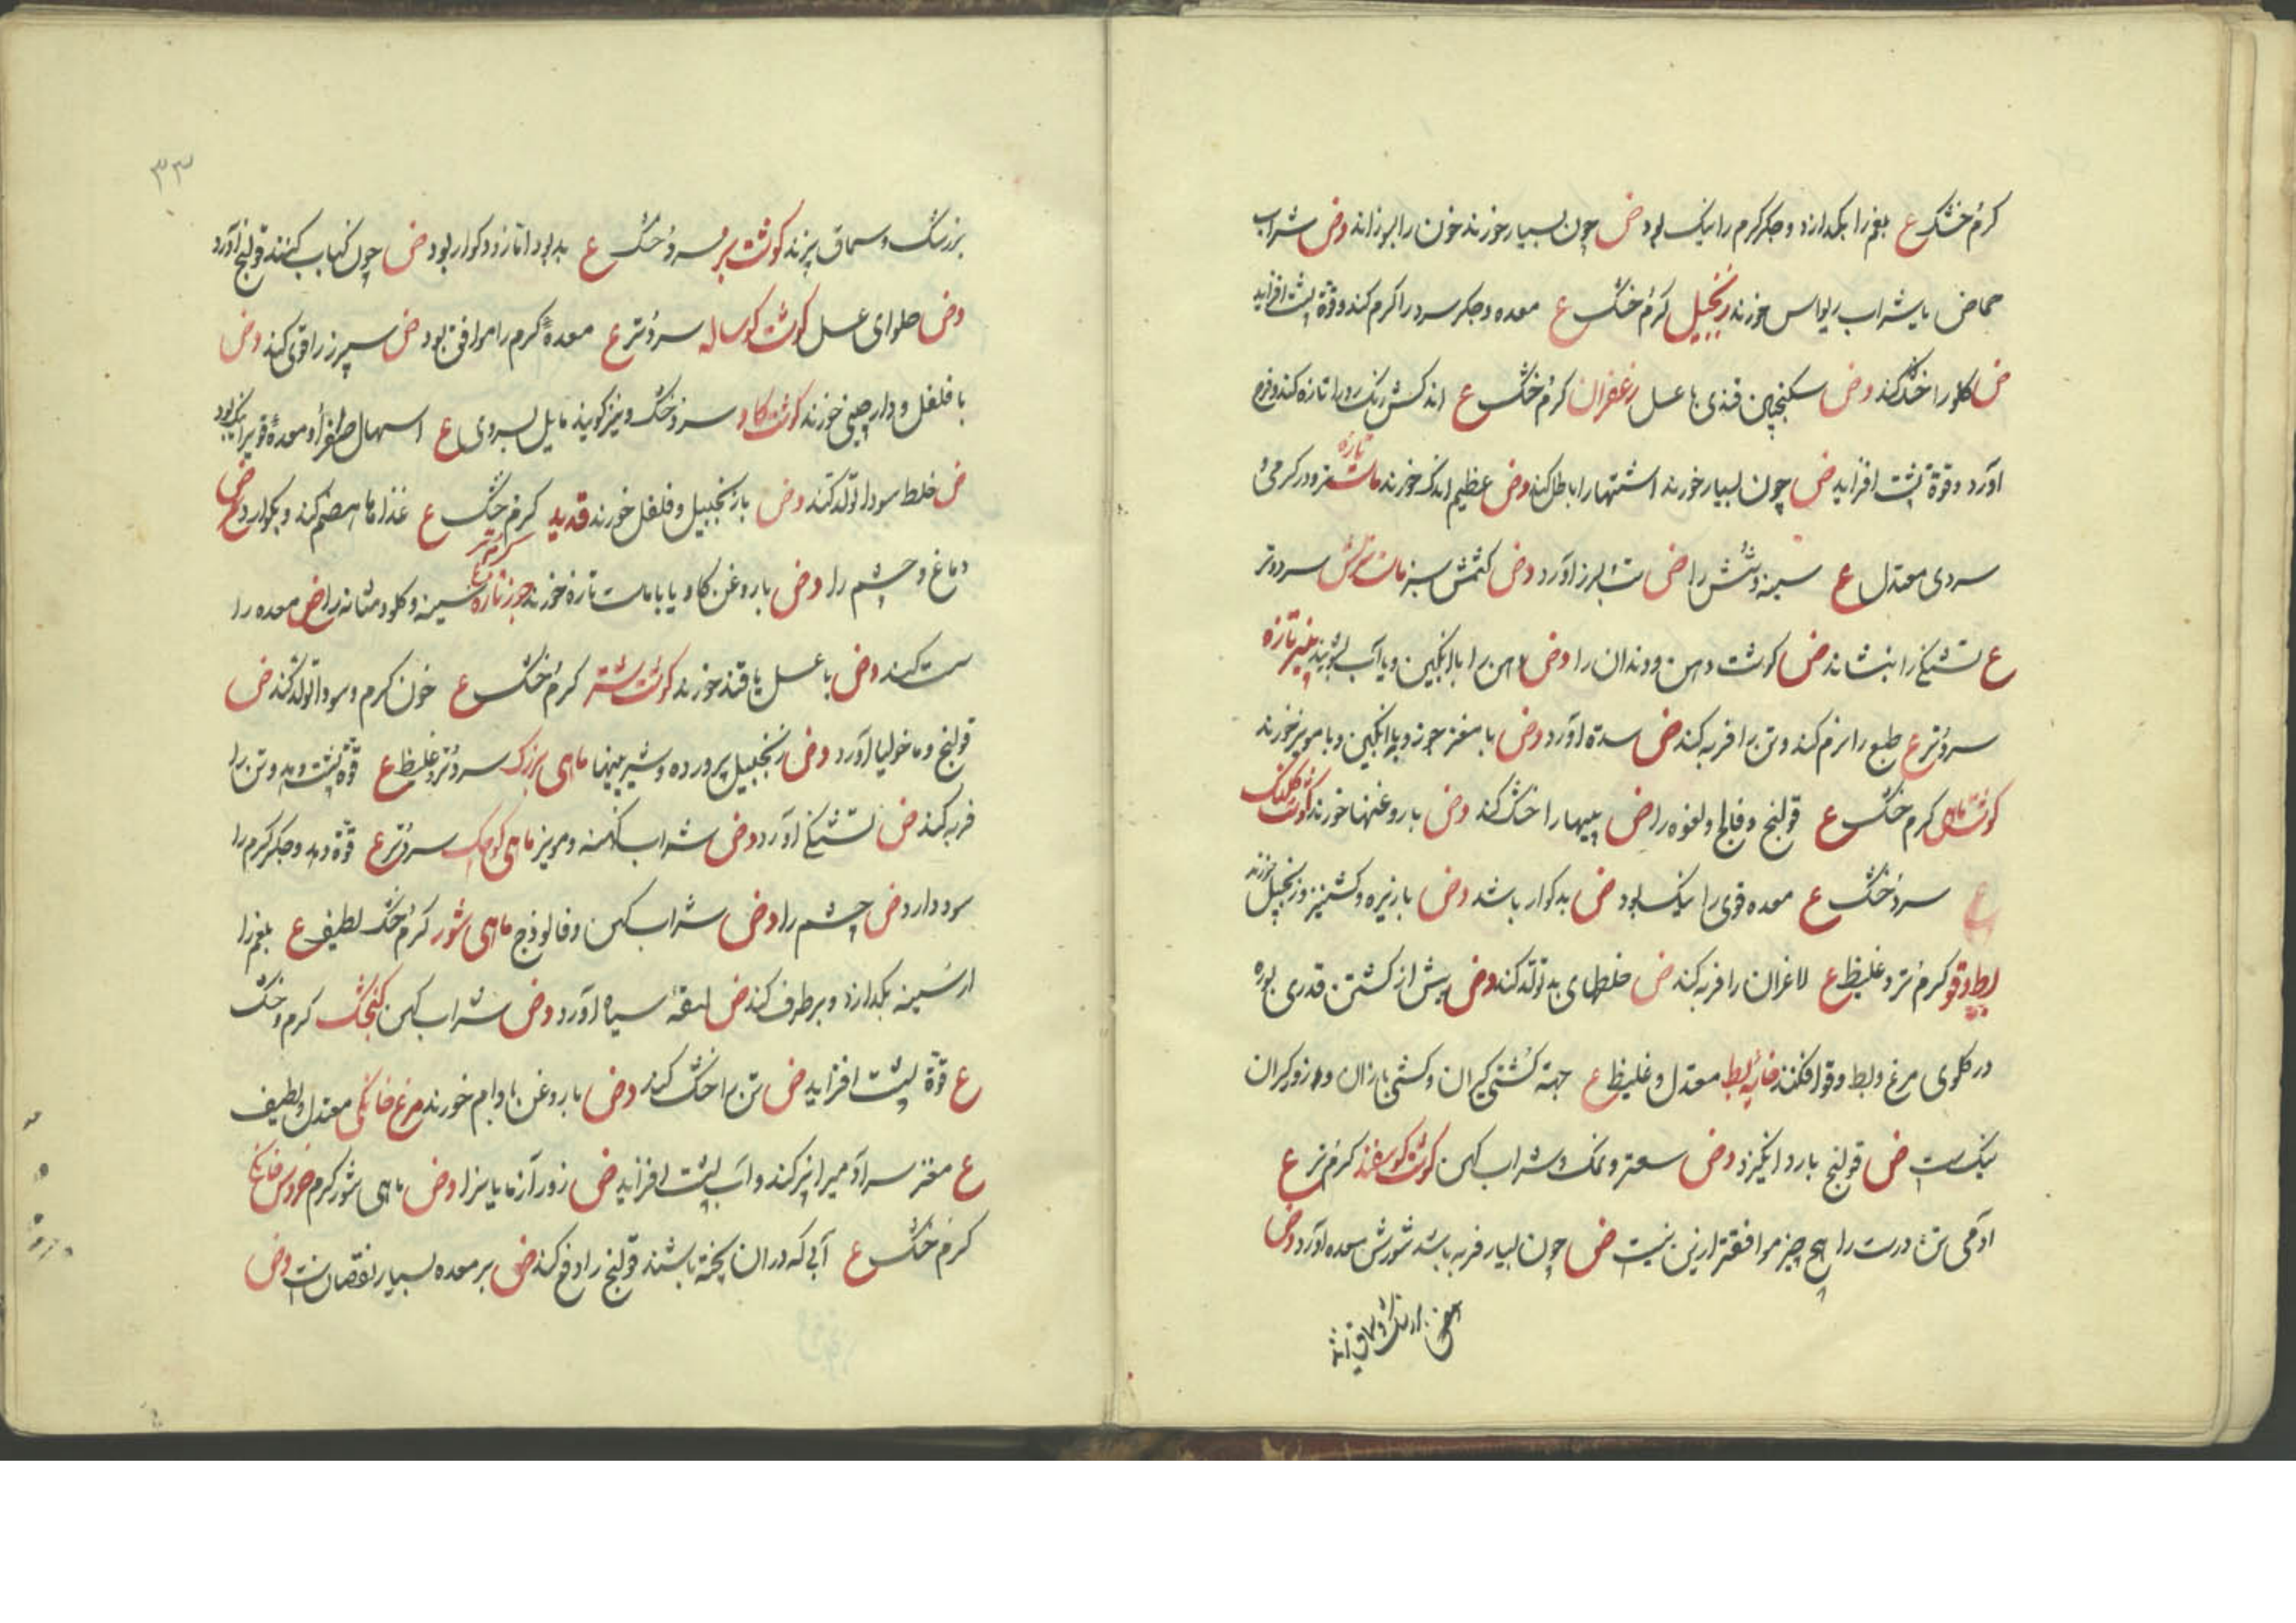 کرم خشک ع بلغم را بکدازد و جکر کرم را نیک بود ض چون بسیار خورند خون را بسوزاند وض شراب
حماض یا شراب ریواس خورند زنجبیل کرم خشک ع معده و جکر سرد را کرم کند و قوة پشت افزاید
ض کلو را خشک کند وض سکنجبین قندی با عسل زعفران کرم خشک ع اندکش رنک رو را تازه کند و فرح
آورد و قوة پشت افزاید ض چون بسیار خورند اشتها را باطل کند وض عظیم اندک خورند ماست تازه تر و در کرمی و
سردی معتدل ع سینه و شش را ض تب لرز آورد وض کشمش سبز ماست ترش سرد و تر
ع تشنکی را بنشاند ض کوشت دهن و دندان را وض دهن را با انکبین و یا آب بشویند پنیر تازه
سرد و تر ع طبع را نرم کند و تن را فربه کند ض سده آورد وض با مغز جوز و یا انکبین و با مویز خورند
کوشت کرم خشک ع قولنج و فالج و لقوه را ض پیها را خشک کند وض با روغنها خورند کوشت کلنک
سرد و خشک ع معده قوی را نیک بود ض بد کوار باشد وض با زیره و کشنیز و زنجبیل خورند
بط و قو کرم تر و غلیظ ع لاغران را فربه کند ض خلطهای بد تولد کند وض پیش از کشتن قدری بوره
در کلوی مرغ و بط و قو افکنند خایه بط معتدل و غلیظ ع جهة کشتی کیران و کشتی بازان و زوکیران
نیک ست ض قولنج بارد انکیزد وض سعتر و نمک و شراب کهن کوشت کوسفند کرم تر ع
آدمی تن درست را هیچ چیز موافقتر ازین نیست ض چون بسیار فربه باشد شورش معده آورد وض
بزرشک و سماق پزند کوشت بز سرد خشک ع بد بود اما زود کوار بود ض چون کباب کنند قولنج آورد
وض حلوای عسل کوشت کوساله سرد و تر ع معدهٔ کرم را موافق بود ض سپرز را قوی کند وض
با فلفل و دارچینی خورند کوشت کاو سرد و خشک و نیز کویند مایل بسردی ع اسهال صفرا و معدهٔ قوی را نیک بود
ض خلط سودا تولد کند وض با زنجبیل و فلفل خورند قدید کرم خشک ع غذاها هضم کند و بکوارد ض
دماغ و چشم را وض با روغن کاو یا با ماست تازه خورند جوز تازه کرم تر ع سینه و کلو و مثانه را ض معده را
سست کند وض با عسل یا قند خورند کوشت شتر کرم خشک ع خون کرم و سودا تولد کند ض
قولنج و ماخولیا آورد وض زنجبیل پرورده و شیرینیها ماهی بزرک سرد و تر و غلیظ ع قوة پشت دهد و تن را
فربه کند ض تشنکی آورد وض شراب کهنه و مویز ماهی کوچک سرد و تر ع قوة دهد و جکر کرم را
سود دارد ض چشم را وض شراب کهن و فالوذج ماهی شور کرم خشک لطیف ع بلغم را
از سینه بکدازد و برطرف کند ض بهق سیاه آورد وض شراب کهن کنجشک کرم و خشک
ع قوة پشت افزاید ض تن را خشک کند وض با روغن بادام خورند مرغ خانکی معتدل و لطیف
ع مغز سر آدمی را پر کند و آب پشت افزاید ض زور آزمایانرا وض ماهی شور کرم خروس خانکی
کرم خشک ع آبی که در آن پخته باشند قولنج را دفع کند ض بر معده بسیار نقصان است وض
۳۳